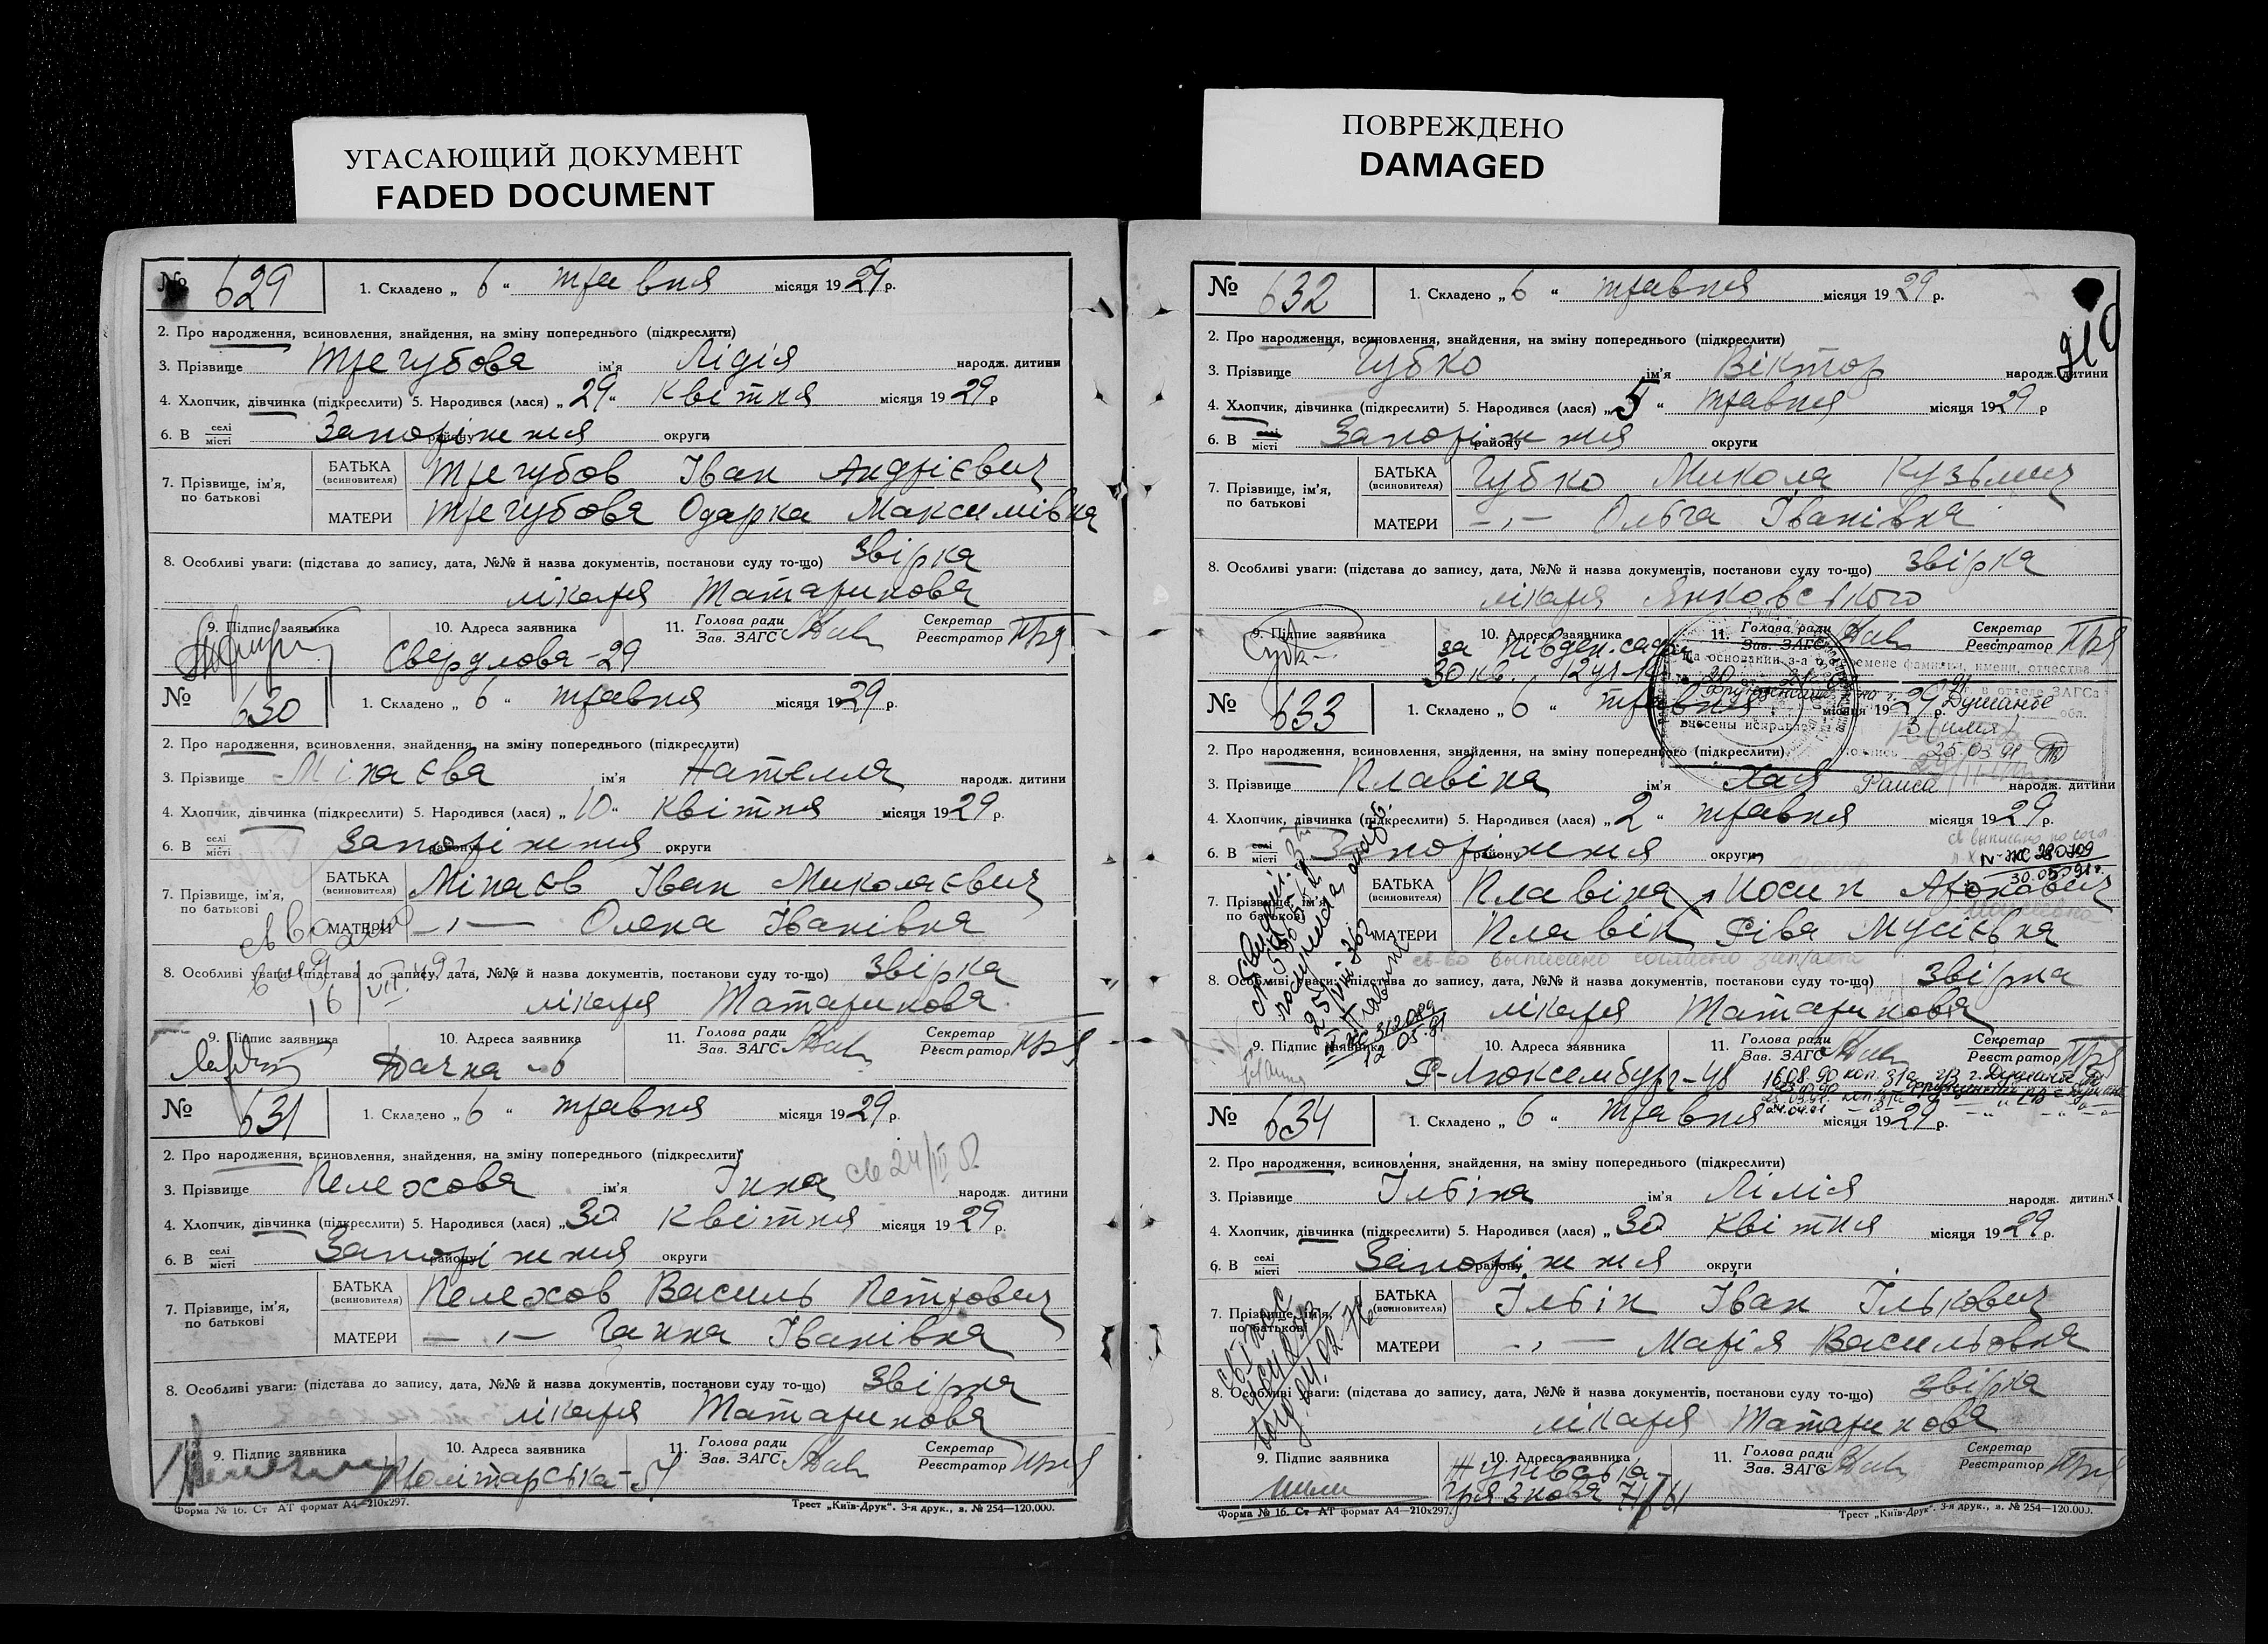 УГАСАЮЩИЙ ДОКУМЕНТ
FADED DOCUMENT
№ 629
1. Складено „ 6 “ травня місяця 1929 р.
2. Про народження, всиновлення, знайдення, на зміну попереднього (підкреслити)
3. Прізвище Трегубова ім’я Лідія народж. дитини
4. Хлопчик, дівчинка (підкреслити) 5. Народився (лася) „ 29 “ Квітня місяця 1929 р
6. В селі місті Запоріжжя району округи
7. Прізвище, ім’я, по батькові
БАТЬКА (всиновителя) Трегубов Іван Андрієвич
МАТЕРИ Трегубова Одарка Максимівна
8. Особливі уваги: (підстава до запису, дата, №№ й назва документів, постанови суду то-що) Звірка
лікаря Татаринова
9. Підпис заявника 10. Адреса заявника 11. Голова ради Зав. ЗАГС Секретар Реєстратор
Свердлова-29
№ 630
1. Складено „ 6 “ травня місяця 1929 р.
2. Про народження, всиновлення, знайдення, на зміну попереднього (підкреслити)
3. Прізвище Мінаєва ім’я Нателля народж. дитини
4. Хлопчик, дівчинка (підкреслити) 5. Народився (лася) „ 10 “ квітня місяця 1929 р.
6. В селі місті Запоріжжя району округи
7. Прізвище, ім’я, по батькові
БАТЬКА (всиновителя) Мінаєв Іван Миколаєвич
МАТЕРИ — „ — Олена Іванівна
8. Особливі уваги: (підстава до запису, дата, №№ й назва документів, постанови суду то-що) Звірка
лікаря Татаринова
9. Підпис заявника 10. Адреса заявника 11. Голова ради Зав. ЗАГС Секретар Реєстратор
Дачна - 6
№ 631
1. Складено „ 6 “ травня місяця 1929 р.
2. Про народження, всиновлення, знайдення, на зміну попереднього (підкреслити)
св 24/III
3. Прізвище Пелехова ім’я Інна народж. дитини
4. Хлопчик, дівчинка (підкреслити) 5. Народився (лася) „ 30 квітня місяця 1929 р.
6. В селі місті Запоріжжя району округи
7. Прізвище, ім’я, по батькові
БАТЬКА (всиновителя) Пелехов Василь Петрович
МАТЕРИ — „ — Ганна Іванівна
8. Особливі уваги: (підстава до запису, дата, №№ й назва документів, постанови суду то-що) Звірка
лікаря Татаринова
9. Підпис заявника 10. Адреса заявника 11. Голова ради Зав. ЗАГС Секретар Реєстратор
Форма № 16. Ст АТ формат А4—210х297. Трест „Київ-Друк“. 3-я друк., з. № 254—120.000.
ПОВРЕЖДЕНО
DAMAGED
№ 632
1. Складено „ 6 “ травня місяця 1929 р.
2. Про народження, всиновлення, знайдення, на зміну попереднього (підкреслити)
3. Прізвище Губко ім’я Віктор народж. дитини
4. Хлопчик, дівчинка (підкреслити) 5. Народився (лася) „ 5 “ травня місяця 1929 р
6. В селі місті Запоріжжя району округи
7. Прізвище, ім’я, по батькові
БАТЬКА (всиновителя) Губко Микола Кузьмич
МАТЕРИ — „ — Ольга Іванівна
8. Особливі уваги: (підстава до запису, дата, №№ й назва документів, постанови суду то-що) Звірка
лікаря Янковського
9. Підпис заявника 10. Адреса заявника 11. Голова ради Зав. ЗАГС Секретар Реєстратор
за Півден. садом
30 кв.
На основании з-а о перемене фамилии, имени, отчества
в отделе ЗАГСа
Душанбе
внесены исправления
3 (имя)
25.03.91
№ 633
1. Складено „ 6 “ травня місяця 1929 р.
2. Про народження, всиновлення, знайдення, на зміну попереднього (підкреслити)
3. Прізвище Плавіна ім’я Хая Раиса народж. дитини
4. Хлопчик, дівчинка (підкреслити) 5. Народився (лася) „ 2 “ травня місяця 1929 р.
6. В селі місті Запоріжжя району округи
30.05.91 г.
7. Прізвище, ім’я, по батькові
БАТЬКА (всиновителя) Плавіна Иосип Аронович
МАТЕРИ Плавін Ріва Мусієвна
св-во выписано согласно
8. Особливі уваги: (підстава до запису, дата, №№ й назва документів, постанови суду то-що) Звірка
лікаря Татаринова
12.05.91
9. Підпис заявника 10. Адреса заявника 11. Голова ради Зав. ЗАГС Секретар Реєстратор
Р-Люксембург-48
16.08.90 коп. з/а г. Душанбе
№ 634
1. Складено „ 6 “ травня місяця 1929 р.
2. Про народження, всиновлення, знайдення, на зміну попереднього (підкреслити)
3. Прізвище Ільіна ім’я Лілія народж. дитини
4. Хлопчик, дівчинка (підкреслити) 5. Народився (лася) „ 30 квітня місяця 1929 р.
6. В селі місті Запоріжжя району округи
7. Прізвище, ім’я, по батькові
БАТЬКА (всиновителя) Ільін Іван Ількович
МАТЕРИ — „ — Марія Васильовна
8. Особливі уваги: (підстава до запису, дата, №№ й назва документів, постанови суду то-що) Звірка
лікаря Татаринова
9. Підпис заявника 10. Адреса заявника 11. Голова ради Зав. ЗАГС Секретар Реєстратор
Форма № 16. Ст АТ формат А4—210х297. Трест „Київ-Друк“. 3-я друк., з. № 254—120.000.